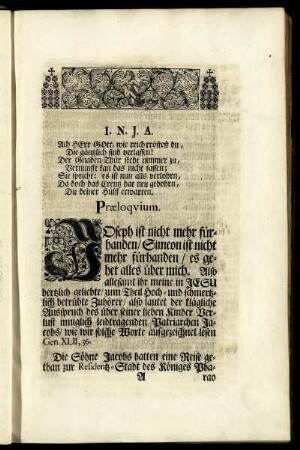 I. N. J. A.
Ach HErr GOtt, wie reich tröstest du,
Die gäntzlich sind verlassen!
Der Gnaden-Thür stehr nimmer zu,
Vernunfft kan das nicht fassen;
Sie spricht: es ist nun alls verlohrn,
Da doch das Creutz hat neu gebohrn,
Die deiner Hülff erwarten.
Præloqvium.
JOseph ist nicht mehr für-
handen/ Simeon ist nicht
mehr fürhanden/ es ge-
het alles über mich. Also
allesamt ihr meine in JESU
hertzlich-geliebte/ zum Theil Hoch- und schmertz-
lich betrübte Zuhörer/ also lautet der klägliche
Ausspruch des über seiner lieben Kinder Ver-
lust inniglich leidtragenden Patriarchen Ja-
cobs/ wie wir solche Worte aufgezeichnet lesen
Gen. XLII, 36.
Die Söhne Jacobs hatten eine Reise ge-
than zur Residentz-Stadt des Königes Pha-
A rao